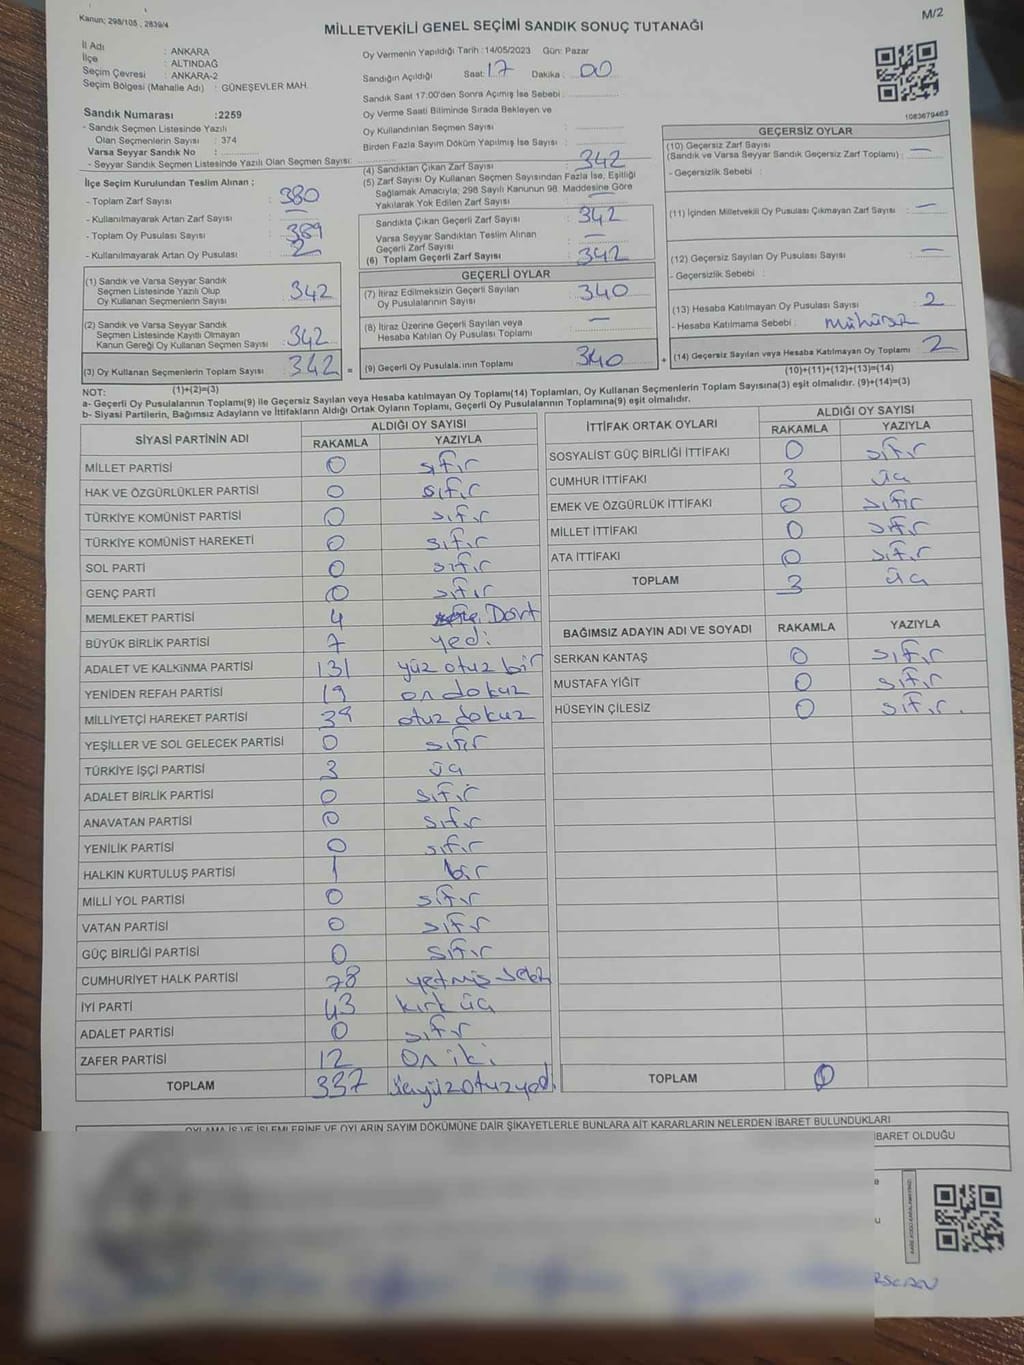 Kanun; 298/105 , 2839/4
M/2
MİLLETVEKİLİ GENEL SEÇİMİ SANDIK SONUÇ TUTANAĞI
İl Adı : ANKARA
İlçe : ALTINDAĞ
Seçim Çevresi : ANKARA-2
Seçim Bölgesi (Mahalle Adı) : GÜNEŞEVLER MAH.
Oy Vermenin Yapıldığı Tarih : 14/05/2023 Gün: Pazar
Sandığın Açıldığı Saat: 17 Dakika : 00
Sandık Saat 17:00'den Sonra Açımış İse Sebebi :
Oy Verme Saati Bitiminde Sırada Bekleyen ve
Oy Kullandırılan Seçmen Sayısı :
Birden Fazla Sayım Döküm Yapılmış İse Sayısı :
1083679463
Sandık Numarası :2259
- Sandık Seçmen Listesinde Yazılı
Olan Seçmenlerin Sayısı : 374
Varsa Seyyar Sandık No :
- Seyyar Sandık Seçmen Listesinde Yazılı Olan Seçmen Sayısı:
İlçe Seçim Kurulundan Teslim Alınan ;
- Toplam Zarf Sayısı : 380
- Kullanılmayarak Artan Zarf Sayısı : —
- Toplam Oy Pusulası Sayısı : 389
- Kullanılmayarak Artan Oy Pusulası : 2
(1) Sandık ve Varsa Seyyar Sandık
Seçmen Listesinde Yazılı Olup
Oy Kullanan Seçmenlerin Sayısı : 342
(2) Sandık ve Varsa Seyyar Sandık
Seçmen Listesinde Kayıtlı Olmayan
Kanun Gereği Oy Kullanan Seçmen Sayısı : 342
(3) Oy Kullanan Seçmenlerin Toplam Sayısı : 342 =
(1)+(2)=(3)
(4) Sandıktan Çıkan Zarf Sayısı : 342
(5) Zarf Sayısı Oy Kullanan Seçmen Sayısından Fazla İse, Eşitliği
Sağlamak Amacıyla; 298 Sayılı Kanunun 98. Maddesine Göre
Yakılarak Yok Edilen Zarf Sayısı :
Sandıkta Çıkan Geçerli Zarf Sayısı : 342
Varsa Seyyar Sandıktan Teslim Alınan
Geçerli Zarf Sayısı : —
(6) Toplam Geçerli Zarf Sayısı : 342
GEÇERLİ OYLAR
(7) İtiraz Edilmeksizin Geçerli Sayılan
Oy Pusulalarının Sayısı : 340
(8) İtiraz Üzerine Geçerli Sayılan veya
Hesaba Katılan Oy Pusulası Toplamı : —
(9) Geçerli Oy Pusulala.ının Toplamı : 340 +
GEÇERSİZ OYLAR
(10) Geçersiz Zarf Sayısı
(Sandık ve Varsa Seyyar Sandık Geçersiz Zarf Toplamı) : —
- Geçersizlik Sebebi :
(11) İçinden Milletvekili Oy Pusulası Çıkmayan Zarf Sayısı : —
(12) Geçersiz Sayılan Oy Pusulası Sayısı : —
- Geçersizlik Sebebi :
(13) Hesaba Katılmayan Oy Pusulası Sayısı : 2
- Hesaba Katılmama Sebebi : mühürsüz
(14) Geçersiz Sayılan veya Hesaba Katılmayan Oy Toplamı : 2
(10)+(11)+(12)+(13)=(14)
NOT:
a- Geçerli Oy Pusulalarının Toplamı(9) ile Geçersiz Sayılan veya Hesaba katılmayan Oy Toplamı(14) Toplamları, Oy Kullanan Seçmenlerin Toplam Sayısına(3) eşit olmalıdır. (9)+(14)=(3)
b- Siyasi Partilerin, Bağımsız Adayların ve İttifakların Aldığı Ortak Oyların Toplamı, Geçerli Oy Pusulalarının Toplamına(9) eşit olmalıdır.
SİYASİ PARTİNİN ADI ALDIĞI OY SAYISI
RAKAMLA YAZIYLA
MİLLET PARTİSİ 0 sıfır
HAK VE ÖZGÜRLÜKLER PARTİSİ 0 sıfır
TÜRKİYE KOMÜNİST PARTİSİ 0 sıfır
TÜRKİYE KOMÜNİST HAREKETİ 0 sıfır
SOL PARTİ 0 sıfır
GENÇ PARTİ 0 sıfır
MEMLEKET PARTİSİ 4 Dört
BÜYÜK BİRLİK PARTİSİ 7 yedi
ADALET VE KALKINMA PARTİSİ 131 yüz otuz bir
YENİDEN REFAH PARTİSİ 19 on dokuz
MİLLİYETÇİ HAREKET PARTİSİ 39 otuz dokuz
YEŞİLLER VE SOL GELECEK PARTİSİ 0 sıfır
TÜRKİYE İŞÇİ PARTİSİ 3 üç
ADALET BİRLİK PARTİSİ 0 sıfır
ANAVATAN PARTİSİ 0 sıfır
YENİLİK PARTİSİ 0 sıfır
HALKIN KURTULUŞ PARTİSİ 1 bir
MİLLİ YOL PARTİSİ 0 sıfır
VATAN PARTİSİ 0 sıfır
GÜÇ BİRLİĞİ PARTİSİ 0 sıfır
CUMHURİYET HALK PARTİSİ 78 yetmiş sekiz
İYİ PARTİ 43 kırk üç
ADALET PARTİSİ 0 sıfır
ZAFER PARTİSİ 12 On iki
TOPLAM 337 üçyüzotuzyedi
İTTİFAK ORTAK OYLARI ALDIĞI OY SAYISI
RAKAMLA YAZIYLA
SOSYALİST GÜÇ BİRLİĞİ İTTİFAKI 0 sıfır
CUMHUR İTTİFAKI 3 üç
EMEK VE ÖZGÜRLÜK İTTİFAKI 0 sıfır
MİLLET İTTİFAKI 0 sıfır
ATA İTTİFAKI 0 sıfır
TOPLAM 3 üç
BAĞIMSIZ ADAYIN ADI VE SOYADI RAKAMLA YAZIYLA
SERKAN KANTAŞ 0 sıfır
MUSTAFA YİĞİT 0 sıfır
HÜSEYİN ÇİLESİZ 0 sıfır.
TOPLAM 0
OYLAMA İŞ VE İŞLEMLERİNE VE OYLARIN SAYIM DÖKÜMÜNE DAİR ŞİKAYETLERLE BUNLARA AİT KARARLARIN NELERDEN İBARET BULUNDUKLARI
İBARET OLDUĞU